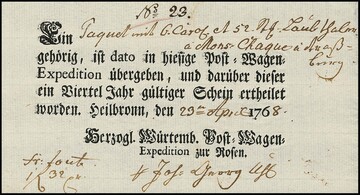 No 23.
Ein Paquet mit 6. Carol. et 52. Laubthaler
a Mons. Chaque a
gehörig, ist dato in hiesige Post-Wagen-
Expedition übergeben, und darüber dieser
ein Viertel Jahr gültiger Schein ertheilet
worden. Heilbronn, den 23ten April 1768
Herzogl. Würtemb. Post-Wagen-
Expedition zur Rosen.
Joh. Georg